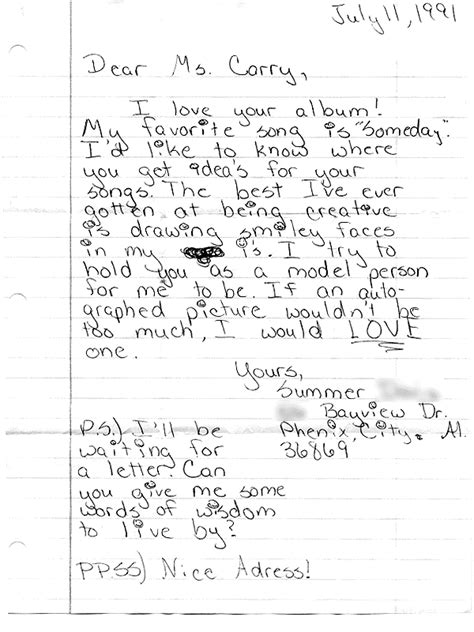 July 11, 1991
Dear Ms. Carry,
I love your album!
My favorite song is "Someday".
I'd like to know where
you get idea's for your
songs. The best I've ever
gotten at being creative
is drawing smiley faces
in my i's. I try to
hold you as a model person
for me to be. If an auto-
graphed picture wouldn't be
too much, I would LOVE
one.
Yours,
Summer
Bayview Dr.
Phenix City, Al.
36869
P.S.) I'll be
waiting for
a letter. Can
you give me some
words of wisdom
to live by?
PPSS) Nice Adress!